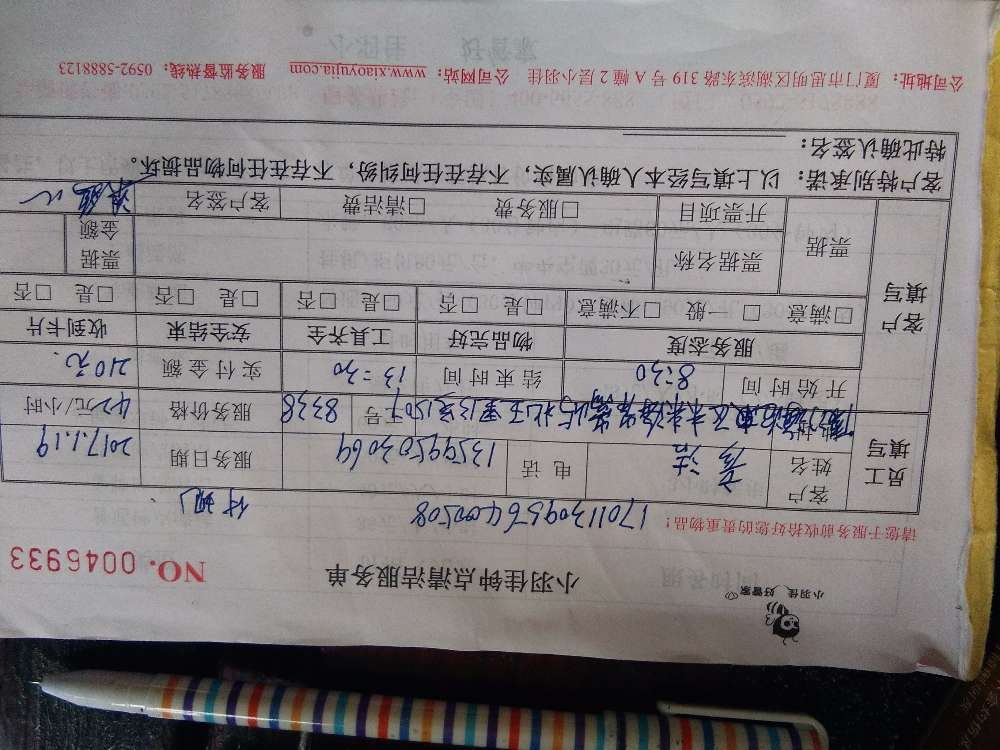 小羽佳 好管家
小羽佳钟点清洁服务单
NO. 0046933
请您于服务前收拾好您的贵重物品!
1701130956400508
员工填写
客户姓名
电话 13599503069
服务日期 2017.1.19
工号 8338
服务价格 42元/小时
开始时间 8:30 结束时间 13:30 实付金额 210元.
客户填写
服务态度 物品完好 工具齐全 安全结束 收到卡片
□满意 □一般 □不满意 □是 □否 □是 □否 □是 □否 □是 □否
票据 票据名称 票据金额
开票项目 □服务费 □清洁费 客户签名
客户特别承诺:以上填写经本人确认属实,不存在任何纠纷,不存在任何物品损坏。
特此确认签名:
公司地址:厦门市思明区湖滨东路 319 号 A 幢 2 层小羽佳 公司网站:www.xiaoyujia.com 服务监督热线:0592-5888123